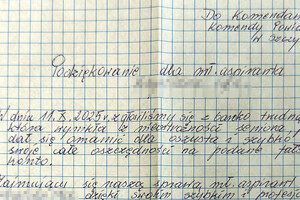 Do Komendan
Komendy Powia
w Szczy
Podziękowanie dla mł. aspiranta
W dniu 11.X.2025 r. zgłosiliśmy się z bardzo trudną
która wynikła z nieostrożności seniora
dał się omamić dla oszusta i szybko
swoje całe oszczędności na podane fał
konto.
Zajmujący się naszą sprawą mł. aspirant
dzięki swoim szybkim i profesj